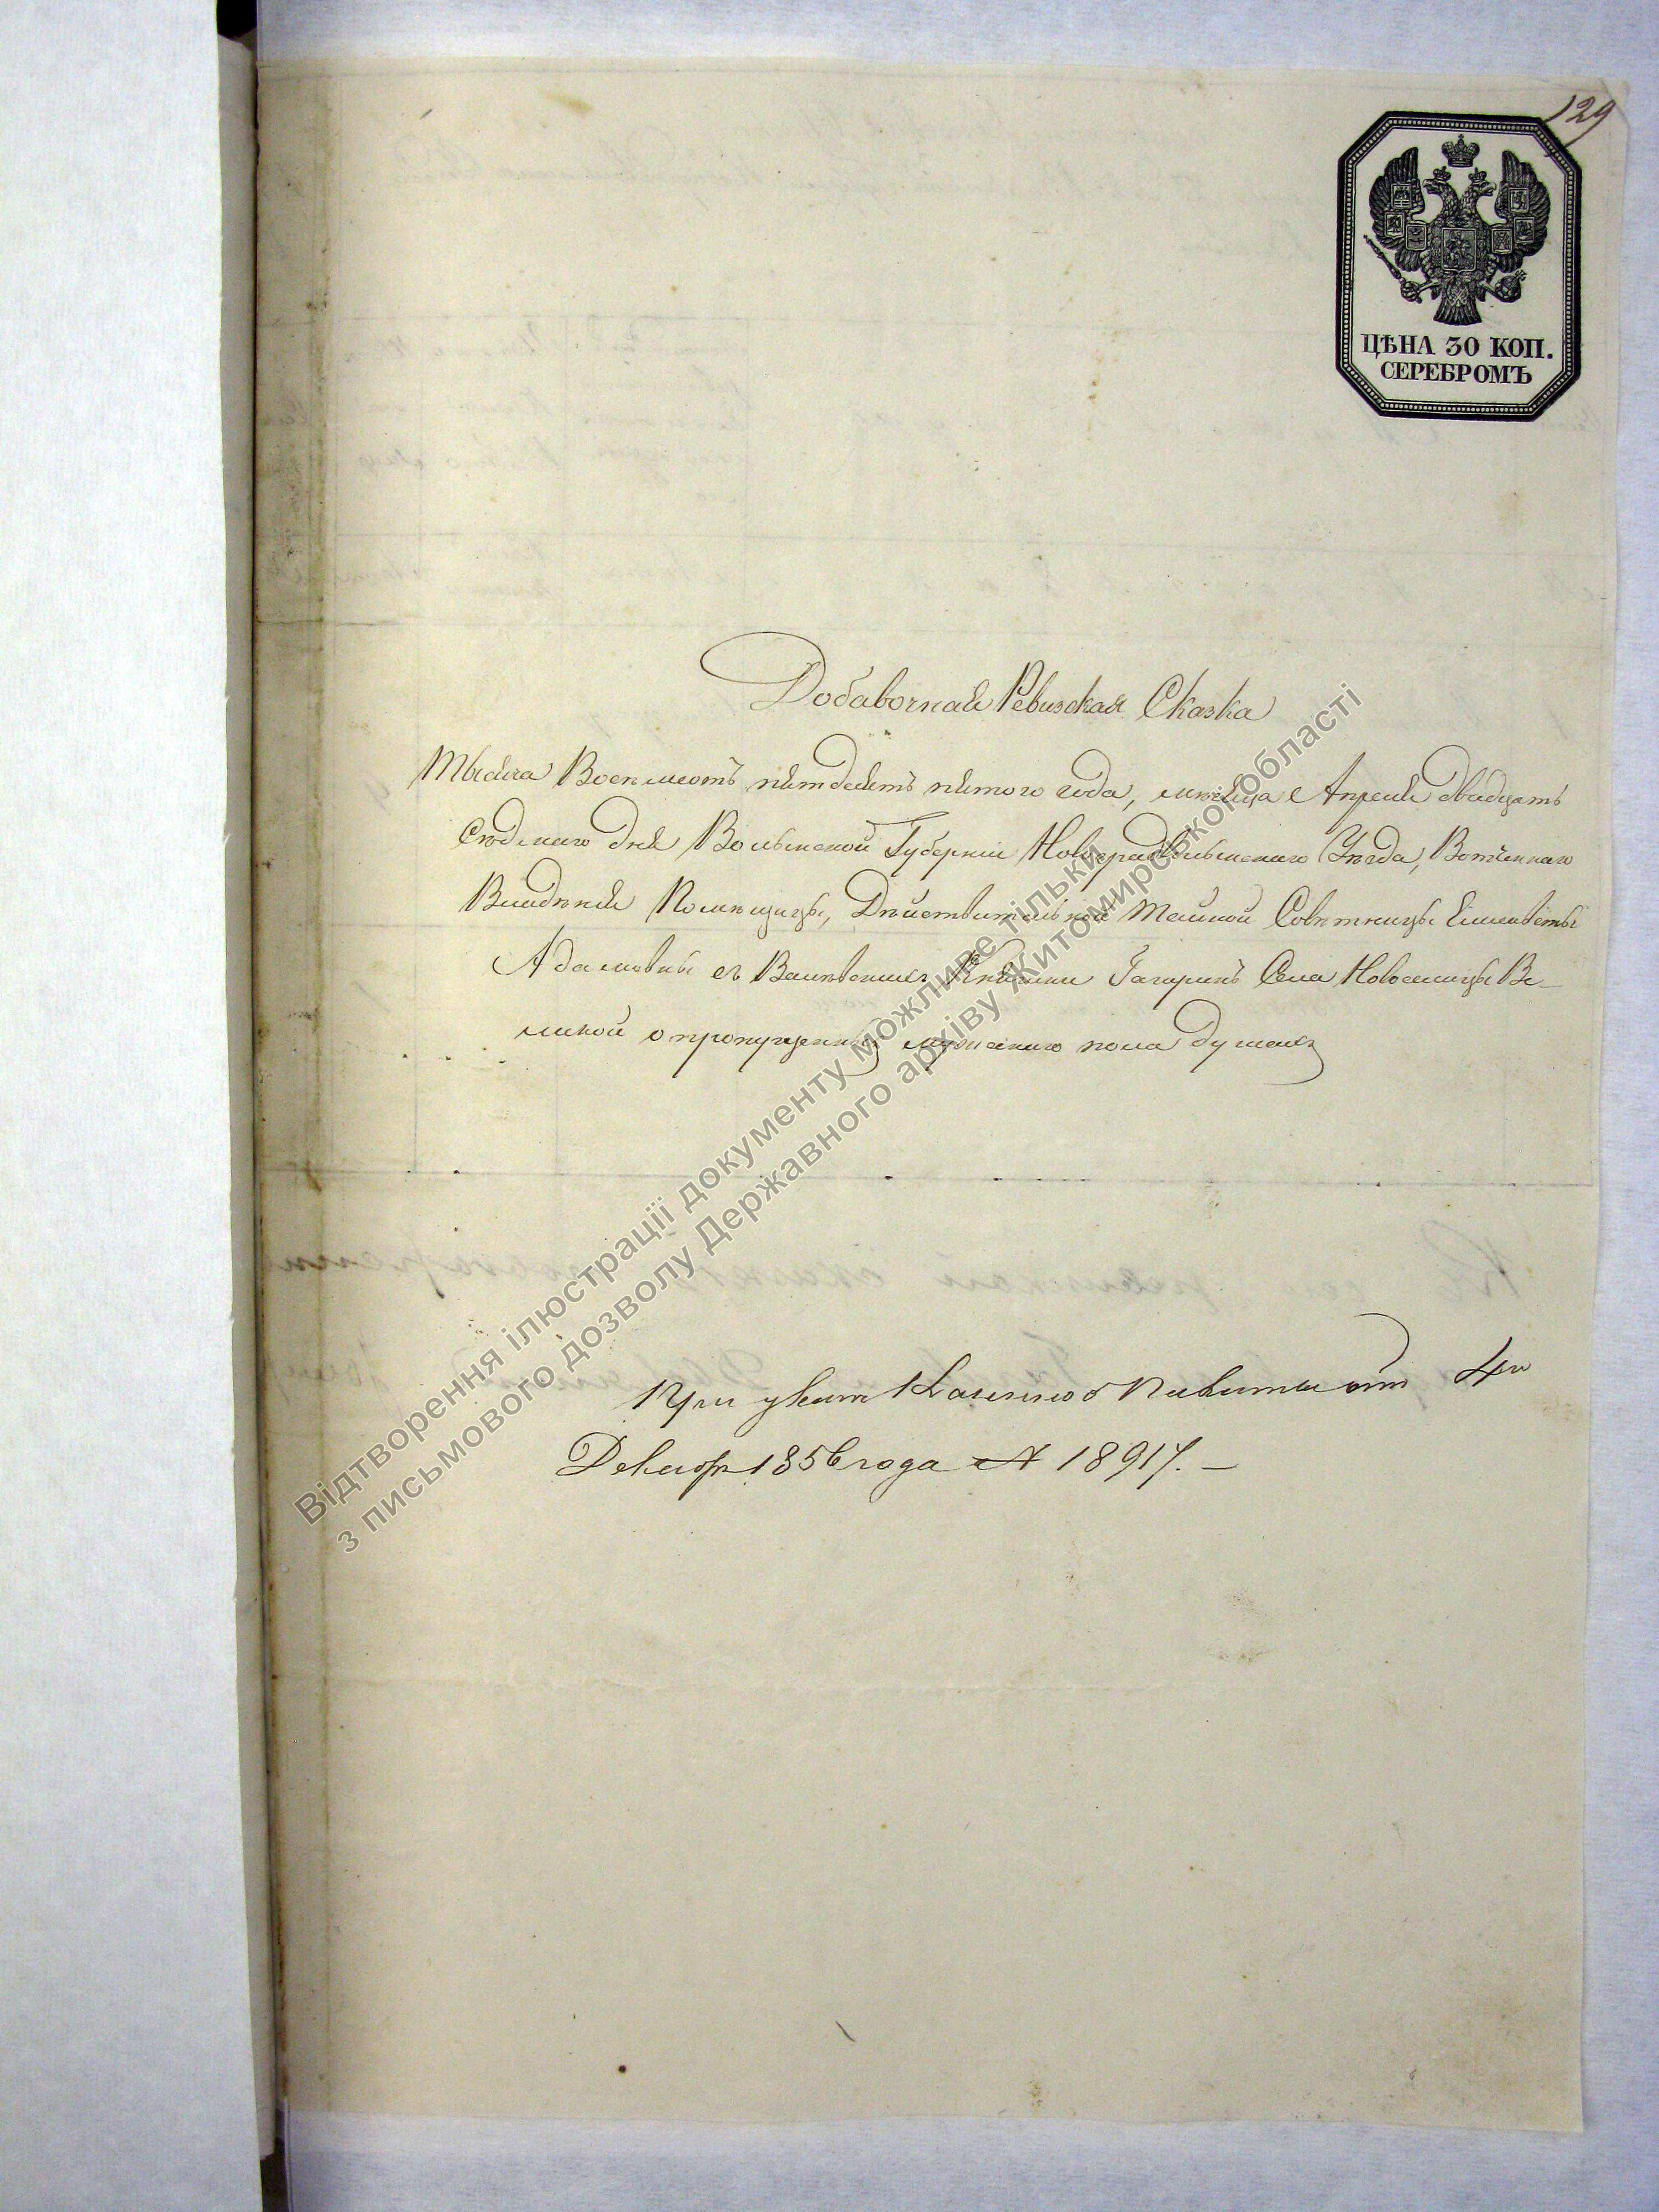 129
ЦѢНА 30 КОП.
СЕРЕБРОМЪ
Добавочная Ревизская Сказка
Тысяча Восемсотъ пятдесятъ пятого года, месяца Апреля двадцать
седмаго дня Волынской Губерніи Новоградволынскаго Уезда, Вотчиннаго
Владѣнія Помѣщицы, Дѣйствительной Тайной Совѣтницы Елисаветы
Адамовны Княгини Гагаринъ Села Новоселицы Ве-
ликой о пропущенныхъ мужескаго пола душахъ
При указе Казенной Палаты отъ 4го
Декабря 1856 года № 18917. —
Відтворення ілюстрації документу можливе тільки
з письмового дозволу Державного архіву Житомирської області